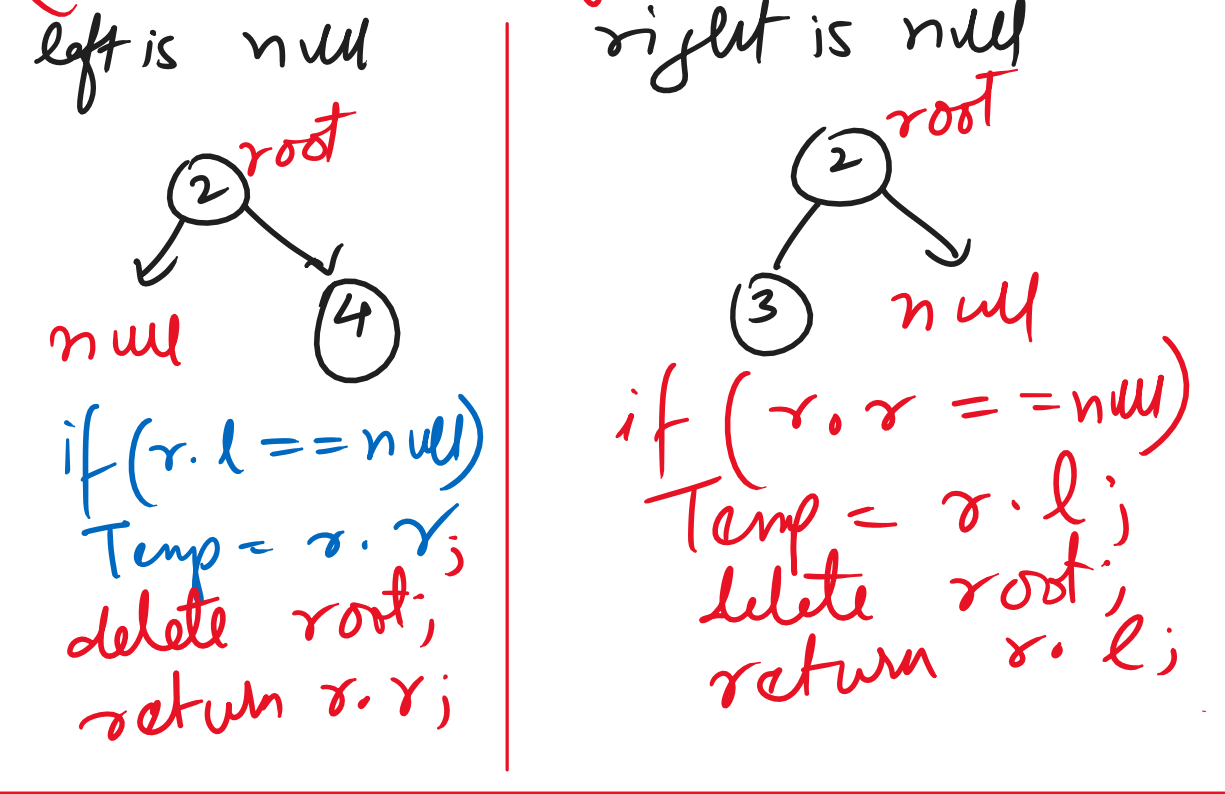 left is null
root
2
4
null
if(r.l==null)
Temp = r.r;
delete root;
return r.r;
right is null
root
2
3
null
if (r.r==null)
Temp = r.l;
delete root;
return r.l;